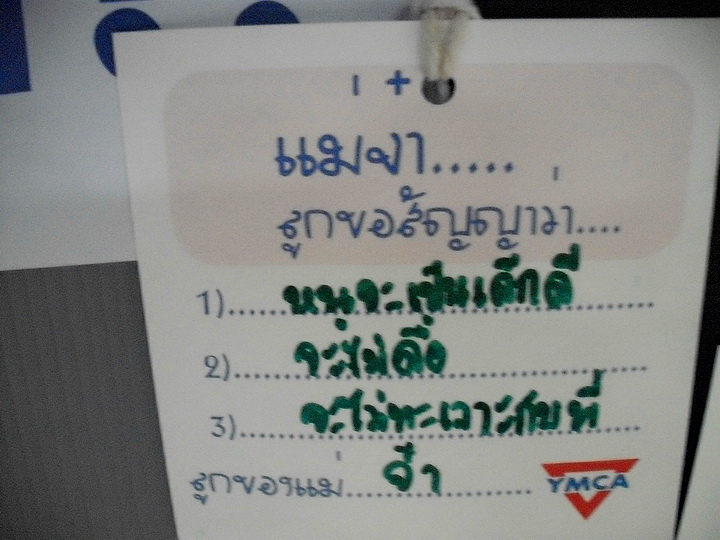 แม่จ๋า.....
ลูกขอสัญญาว่า....
1)......หนูจะเป็นเด็กดี
2)......จะไม่ดื้อ
3)......จะไม่ทะเลาะกับพี่
ลูกของแม่.... จ๋า
YMCA